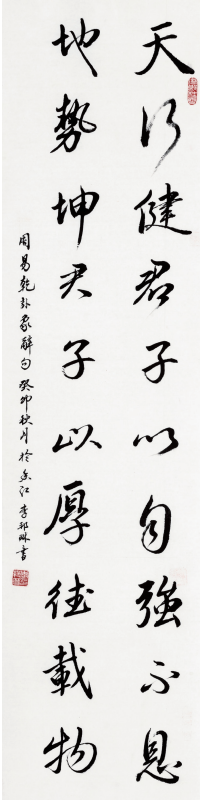 天行健君子以自強不息
地勢坤君子以厚德載物
周易乾卦象辭句 癸卯秋月於香江 李